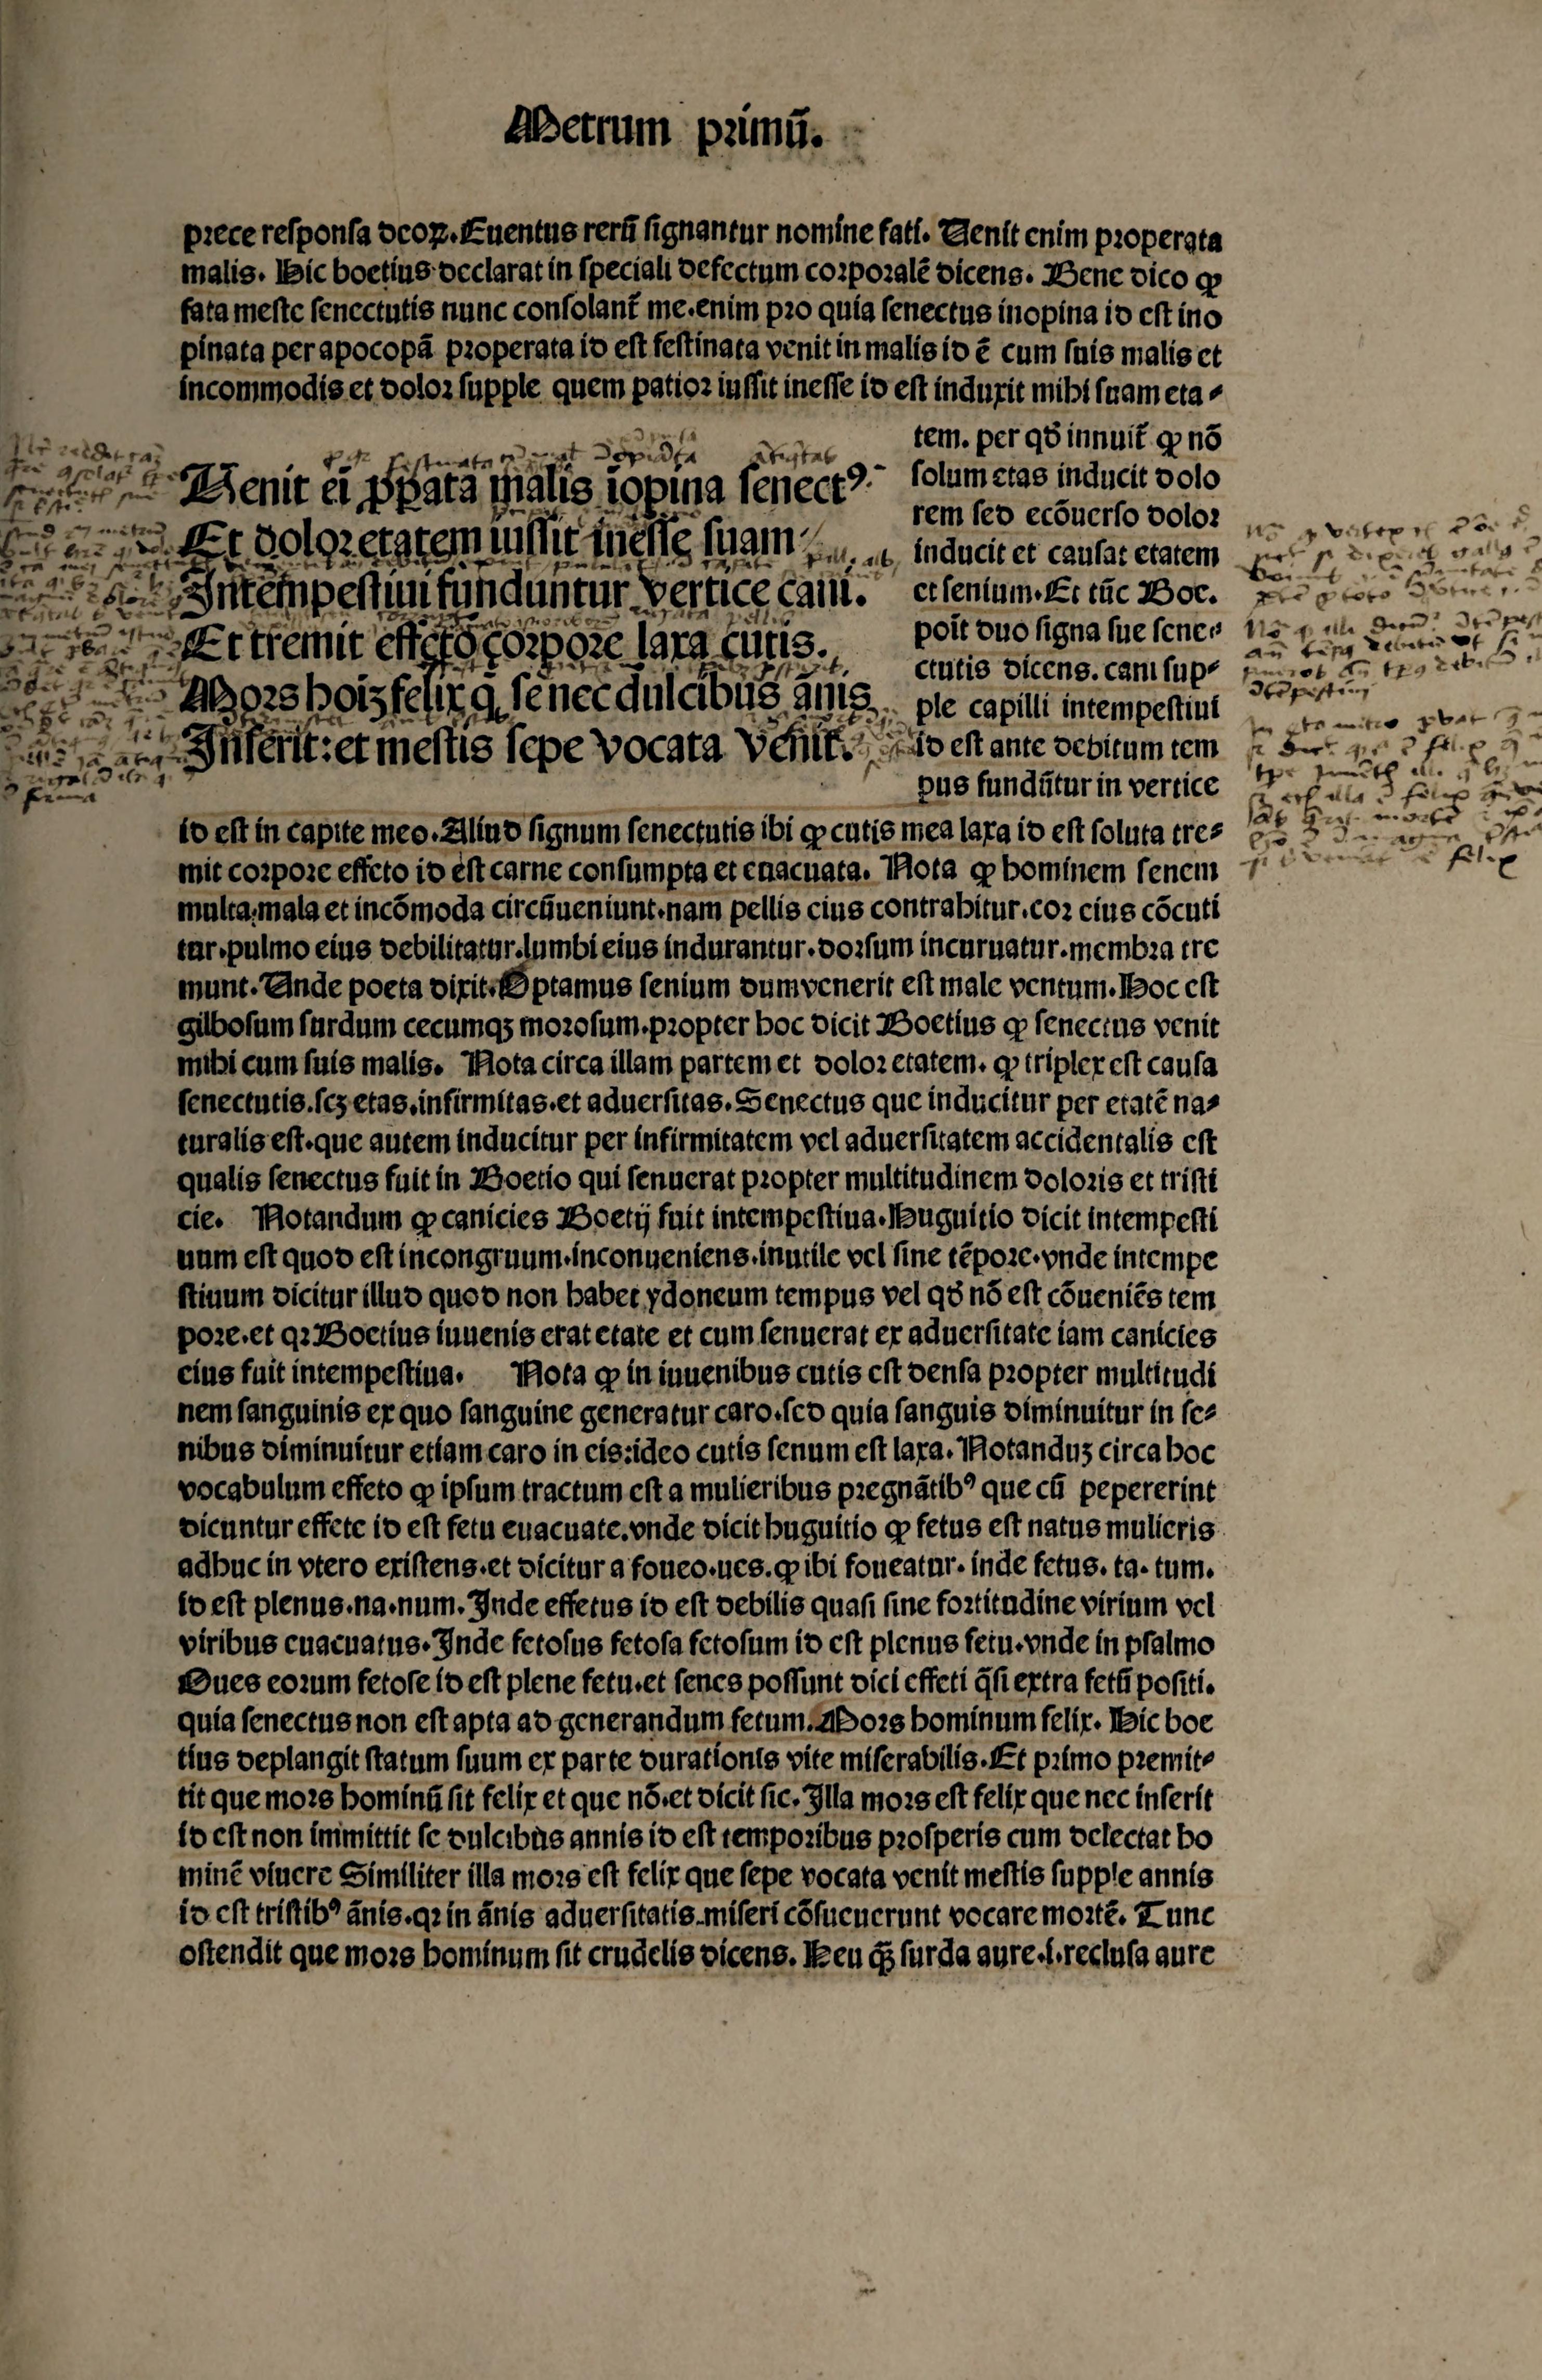 Metrum primū.
prece responsa deoꝝ. Euentus rerū signantur nomine fati. Venit enim properata
malis. Hic boetius declarat in speciali defectum corporalē dicens. Bene dico ꝙ
fata meste senectutis nunc consolant̃ me. enim pro quia senectus inopina id est ino
pinata per apocopā properata id est festinata venit in malis id ē cum suis malis et
incommodis et dolor supple quem patior iussit inesse id est induxit mihi suam eta⸗
tem. per qď innuit̃ ꝙ nō
solum etas inducit dolo
rem sed ecōuerso dolor
inducit et causat etatem
et senium. Et tūc Boe.
poīt duo signa sue sene⸗
ctutis dicens. cani sup⸗
ple capilli intempestiui
id est ante debitum tem
pus fundūtur in vertice
Venit ei̅ ꝓpata malis īopina senectꝰ.
Et dolor etatem iussit inesse suam
Intempestiui funduntur vertice cani.
Et tremit effeto corpore laxa cutis.
Mors hoīꝫ felix q̄ se nec dulcibus ānis
Inserit: et mestis sepe vocata venit.
id est in capite meo. Aliud signum senectutis ibi ꝙ cutis mea laxa id est soluta tre⸗
mit corpore effeto id est carne consumpta et euacuata. Nota ꝙ hominem senem
multa mala et incōmoda circūueniunt. nam pellis eius contrahitur. cor eius cōcuti
tur. pulmo eius debilitatur. lumbi eius indurantur. dorsum incuruatur. membra tre
munt. Unde poeta dixit. Optamus senium dumvenerit est male ventum. Hoc est
gilbosum surdum cecumqꝫ morosum. propter hoc dicit Boetius ꝙ senectus venit
mihi cum suis malis. Nota circa illam partem et dolor etatem. ꝙ triplex est causa
senectutis. scꝫ etas. infirmitas. et aduersitas. Senectus que inducitur per etatē na⸗
turalis est. que autem inducitur per infirmitatem vel aduersitatem accidentalis est
qualis senectus fuit in Boetio qui senuerat propter multitudinem doloris et tristi
cie. Notandum ꝙ canicies Boetij fuit intempestiua. Huguitio dicit intempesti
uum est quod est incongruum. inconueniens. inutile vel sine tēpore. vnde intempe
stiuum dicitur illud quod non habet ydoneum tempus vel qď nō est cōueniēs tem
pore. et qꝛ Boetius iuuenis erat etate et cum senuerat ex aduersitate iam canicies
eius fuit intempestiua. Nota ꝙ in iuuenibus cutis est densa propter multitudi
nem sanguinis ex quo sanguine generatur caro. sed quia sanguis diminuitur in se⸗
nibus diminuitur etiam caro in eis: ideo cutis senum est laxa. Notanduꝫ circa hoc
vocabulum effeto ꝙ ipsum tractum est a mulieribus pregnātibꝰ que cū pepererint
dicuntur effete id est fetu euacuate. vnde dicit huguitio ꝙ fetus est natus mulieris
adhuc in vtero existens. et dicitur a foueo. ues. ꝙ ibi foueatur. inde fetus. ta. tum.
id est plenus. na. num. Inde effetus id est debilis quasi sine fortitudine virium vel
viribus euacuatus. Inde fetosus fetosa fetosum id est plenus fetu. vnde in psalmo
Oues eorum fetose id est plene fetu. et senes possunt dici effeti q̄si extra fetū positi.
quia senectus non est apta ad generandum fetum. Mors hominum felix. Hic boe
tius deplangit statum suum ex parte durationis vite miserabilis. Et primo premit⸗
tit que mors hominū sit felix et que nō. et dicit sic. Illa mors est felix que nec inserit
id est non immittit se dulcibus annis id est temporibus prosperis cum delectat ho
minē viuere Similiter illa mors est felix que sepe vocata venit mestis supple annis
id est tristibꝰ ānis. qꝛ in ānis aduersitatis miseri cōsueuerunt vocare mortē. Tunc
ostendit que mors hominum sit crudelis dicens. Heu ꝙ̄ surda aure .i. reclusa aure